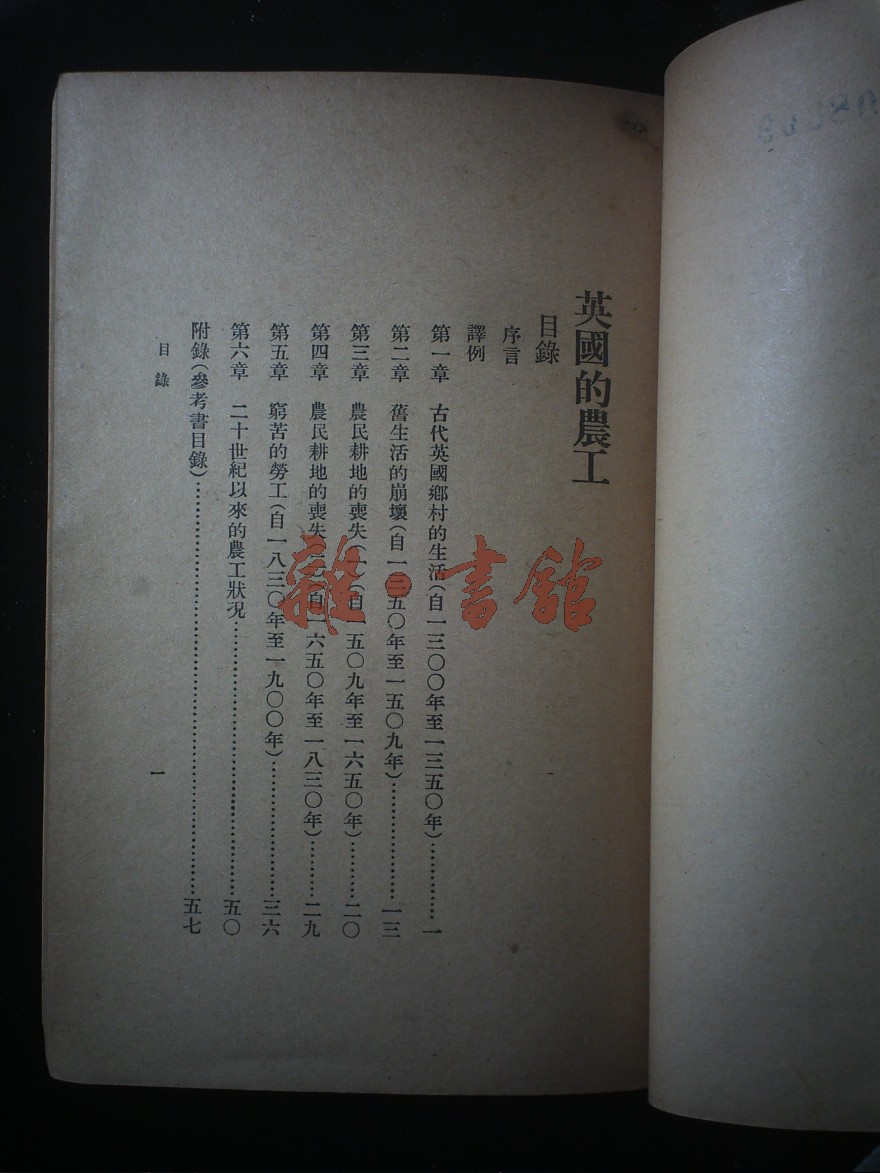 英國的農工
目錄
序言
譯例
第一章 古代英國鄉村的生活(自一三〇〇年至一三五〇年)……………一
第二章 舊生活的崩壞(自一三五〇年至一五〇九年)……………一三
第三章 農民耕地的喪失(一)(自一五〇九年至一六五〇年)…………二〇
第四章 農民耕地的喪失(二)(自一六五〇年至一八三〇年)…………二九
第五章 窮苦的勞工(自一八三〇年至一九〇〇年)……………………三六
第六章 二十世紀以來的農工狀況……………………………………五〇
附錄(參考書目錄)……………………………………………………五七
目錄
一
雜·書館